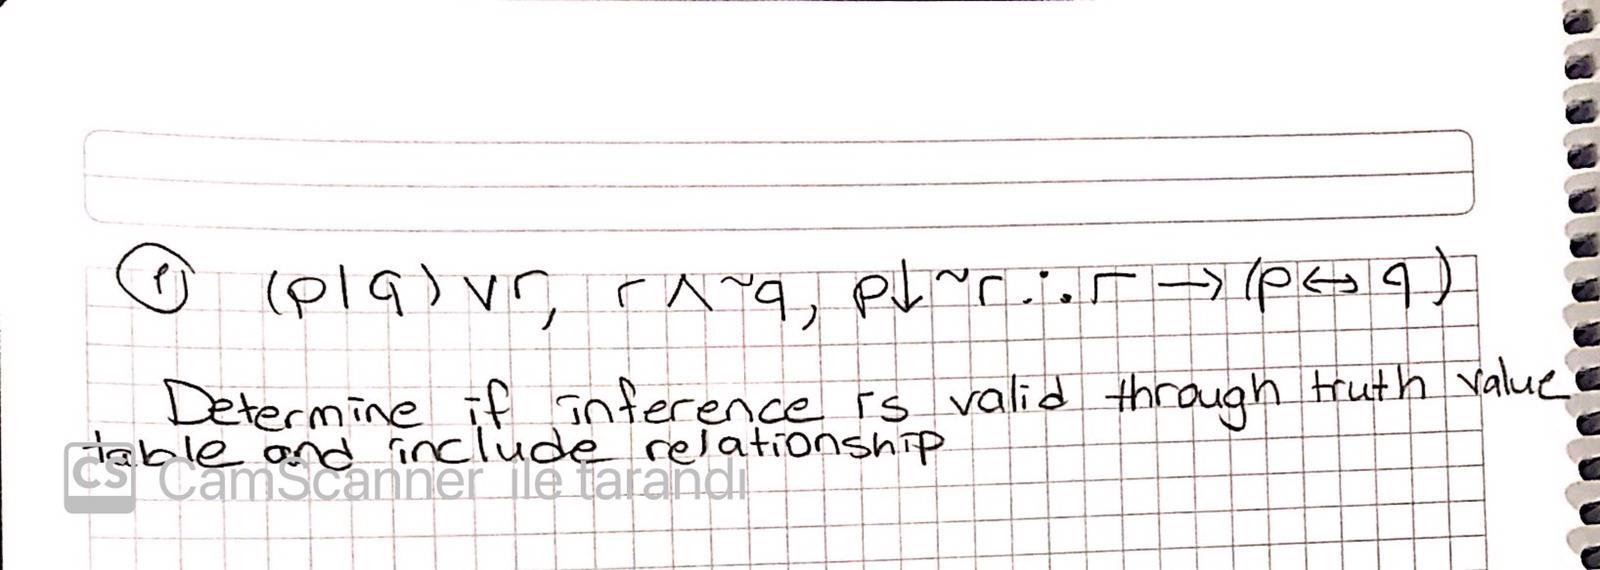 ① (p|q) ∨ r, r ∧ ~q, p↓~r ∴ r → (p ↔ q)
Determine if inference is valid through truth value
table and include relationship
CS CamScanner ile tarandı